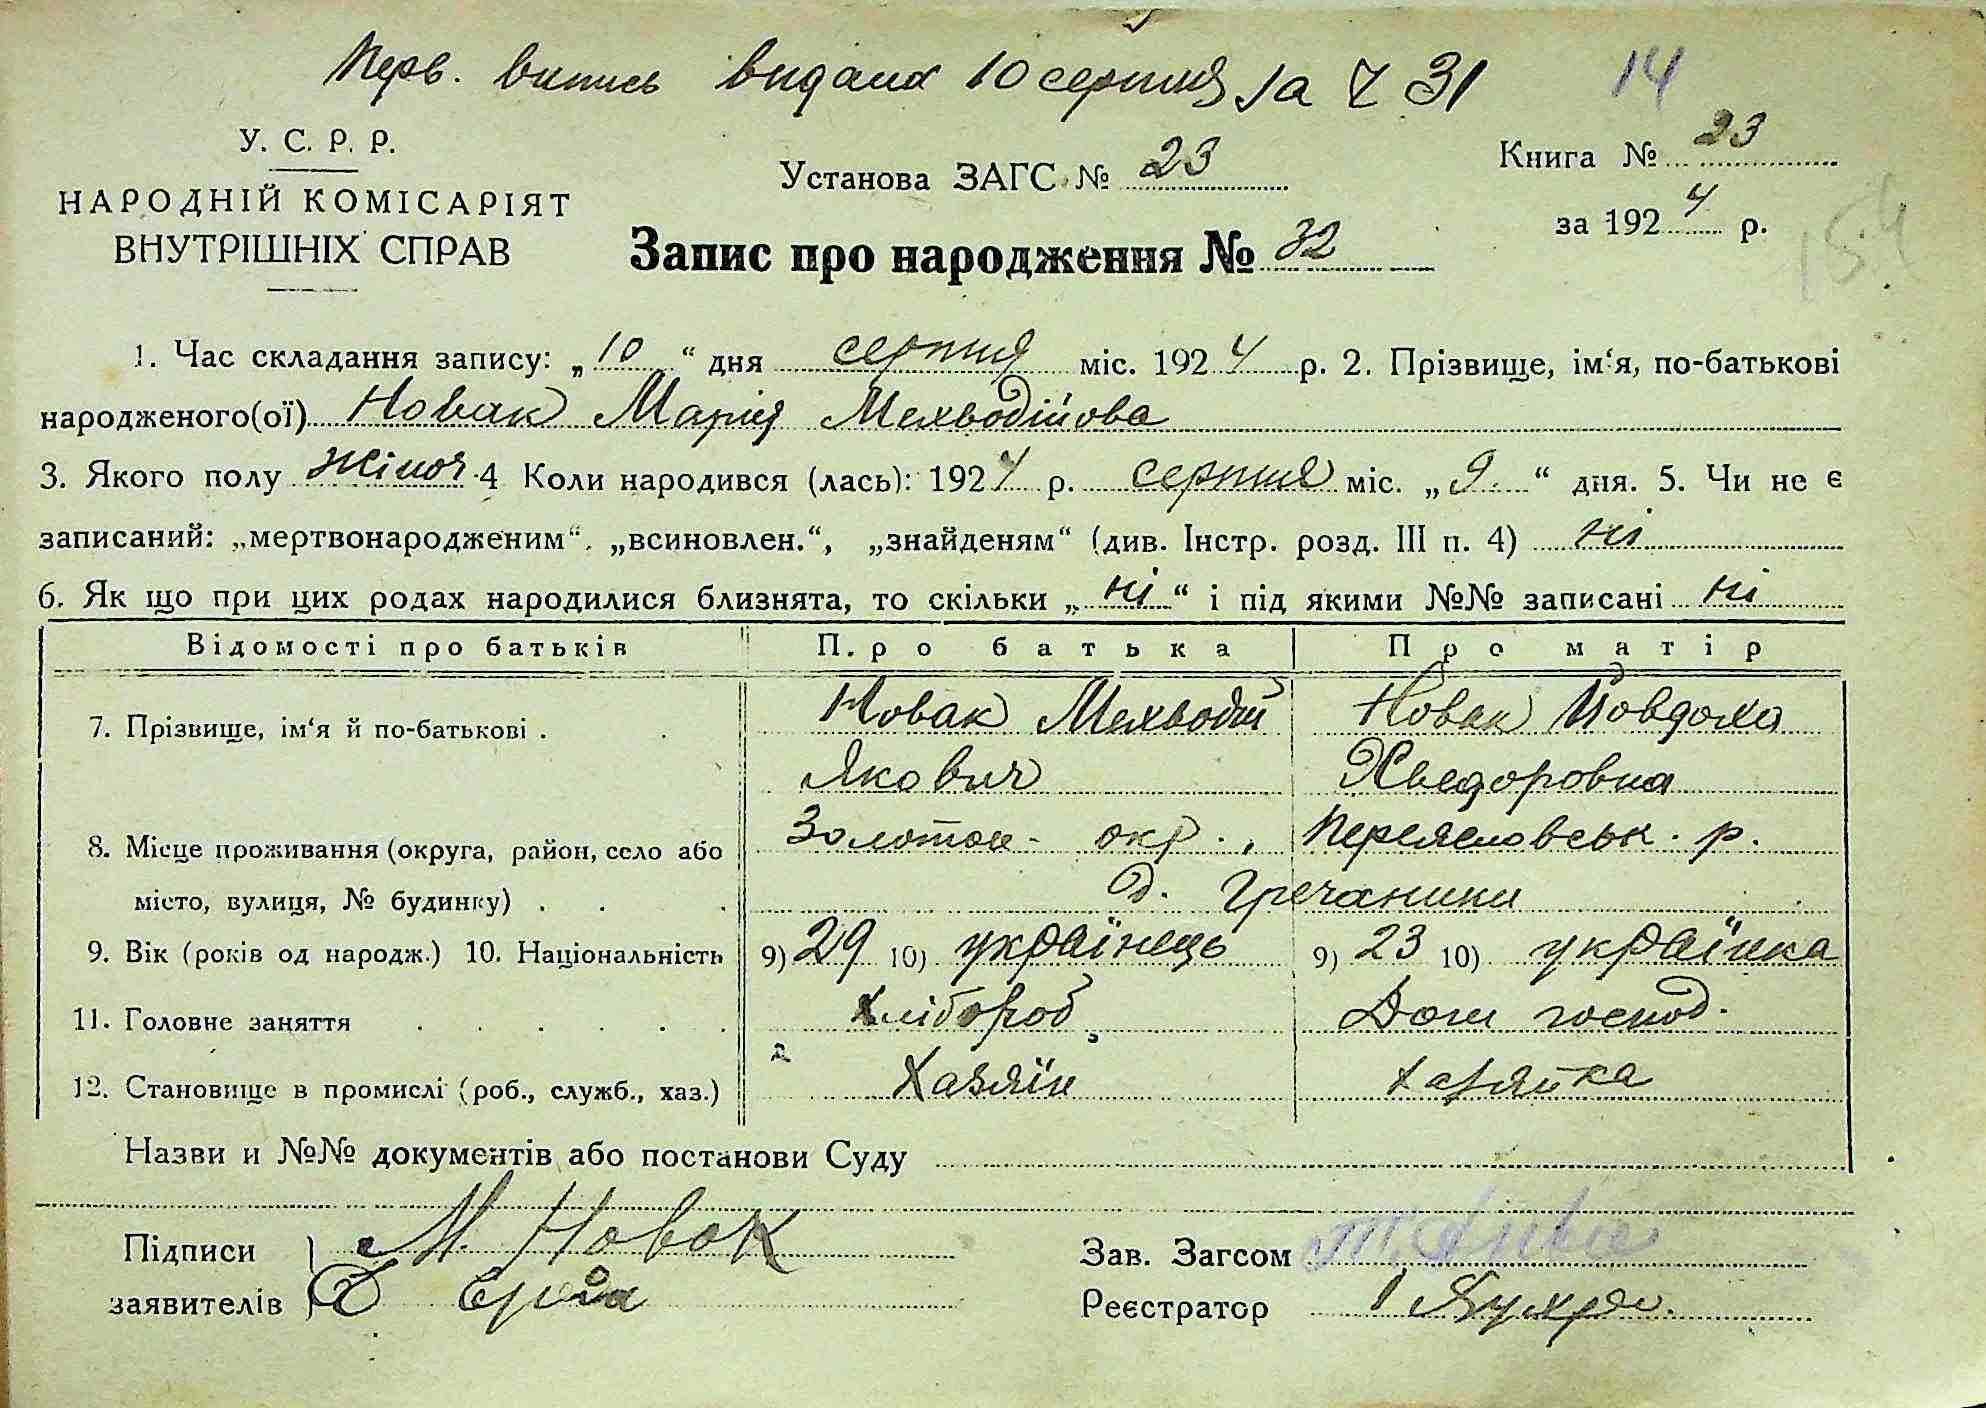 Перв. випись видана 10 серпня за № 31
14
У. С. Р. Р.
НАРОДНІЙ КОМІСАРІЯТ
ВНУТРІШНІХ СПРАВ
Установа ЗАГС № 23
Книга № 23
за 1924 р.
Запис про народження № 32
1. Час складання запису: „10“ дня серпня міс. 1924 р. 2. Прізвище, ім‘я, по-батькові
народженого(ої) Новак Марія Мехводійова
3. Якого полу жіноч 4 Коли народився (лась): 1924 р. серпня міс. „9.“ дня. 5. Чи не є
записаний: „мертвонародженим“, „всиновлен.“, „знайденям“ (див. Інстр. розд. III п. 4) ні
6. Як що при цих родах народилися близнята, то скільки „ні“ і під якими №№ записані ні
Відомості про батьків Про батька Про матір
7. Прізвище, ім‘я й по-батькові . Новак Мехводій Новак Йовдоха
Якович Хведоровна
8. Місце проживання (округа, район, село або Золотон- окр., Переясловськ. р.
місто, вулиця, № будинку) . д. Гречаники
9. Вік (років од народж.) 10. Національність 9) 29 10) українець 9) 23 10) українка
11. Головне заняття Хлібороб Дом господ.
12. Становище в промислі (роб., служб., хаз.) Хазяїн хазяйка
Назви и №№ документів або постанови Суду
Підписи М. Новак Зав. Загсом
заявителів Реєстратор